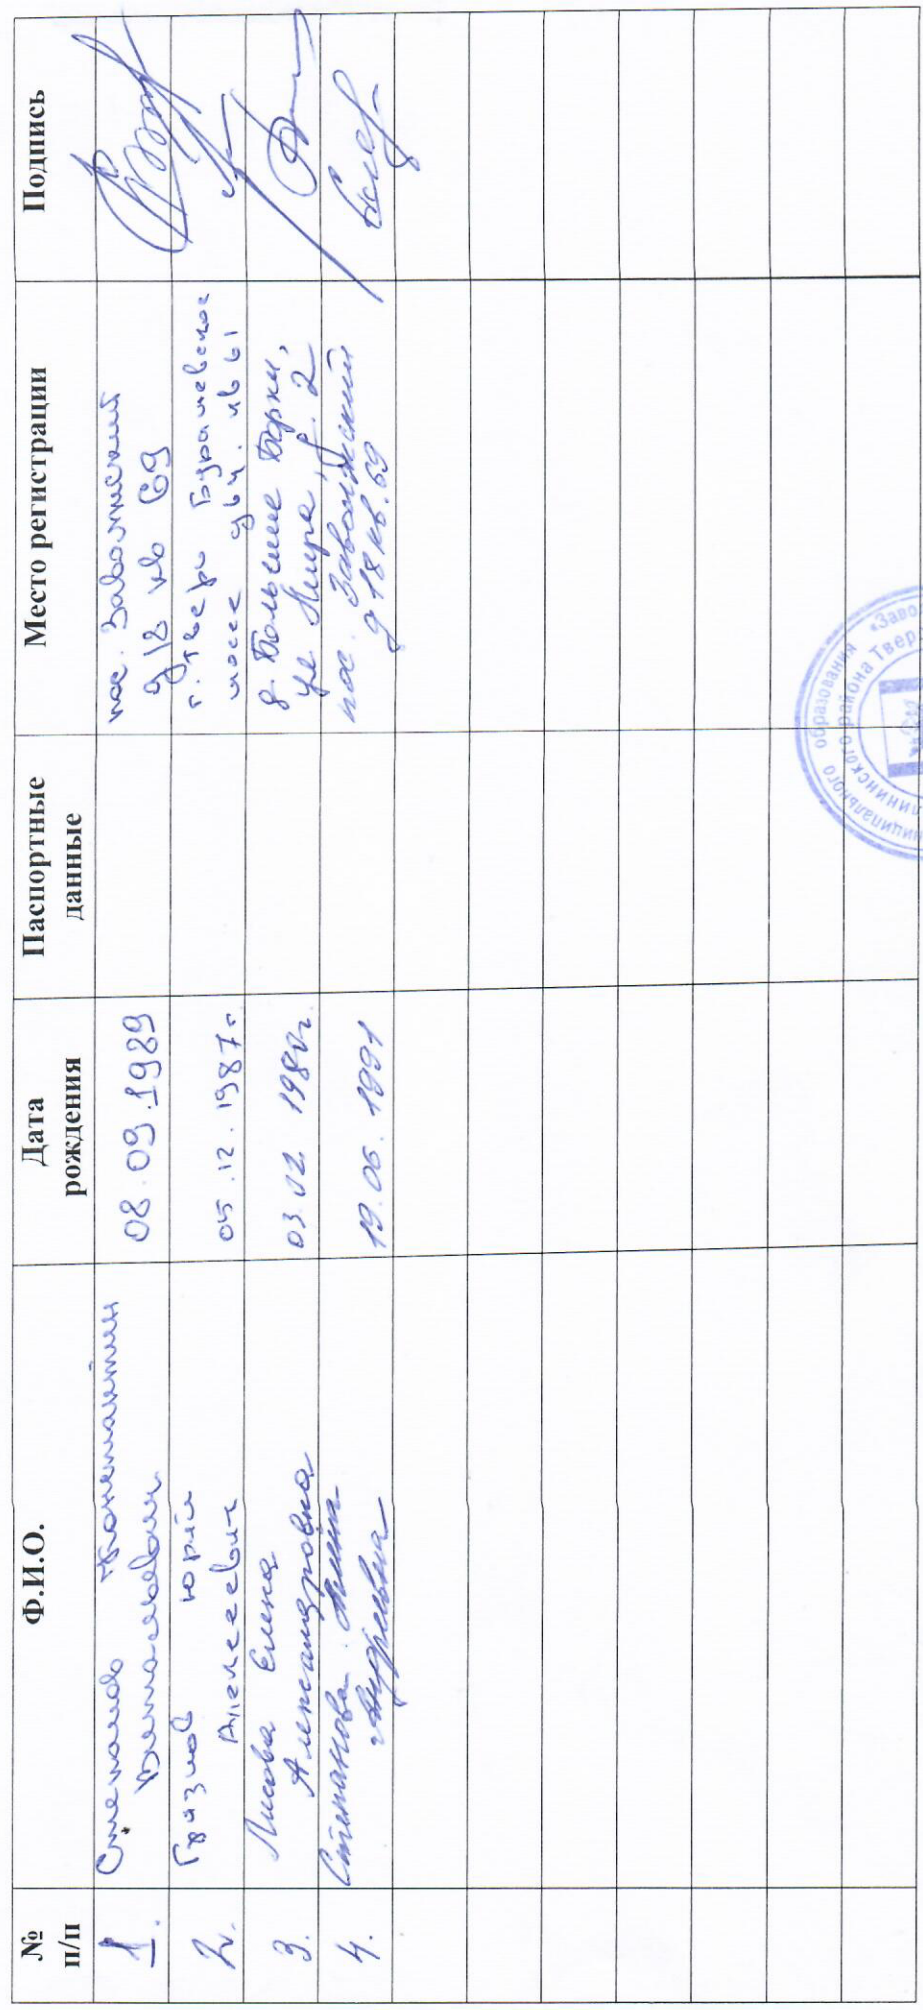 № п/п
Ф.И.О.
Дата рождения
Паспортные данные
Место регистрации
Подпись
1.
Степанов Константин
Витальевич
08.09.1989
пос. Заволжский
д 18 кв 69
2.
Грязнов Юрий
Алексеевич
05.12.1987г
г. Тверь Бурашевское
шоссе д64. кв 61
3.
Лисова Елена
Александровна
03.02 1980г.
д. Большие Борки,
ул Мира, д. 2
4.
Степанова
Андреевна
19.06.1991
пос. Заволжский
д 18 кв. 69
образования «Заво
района Твер